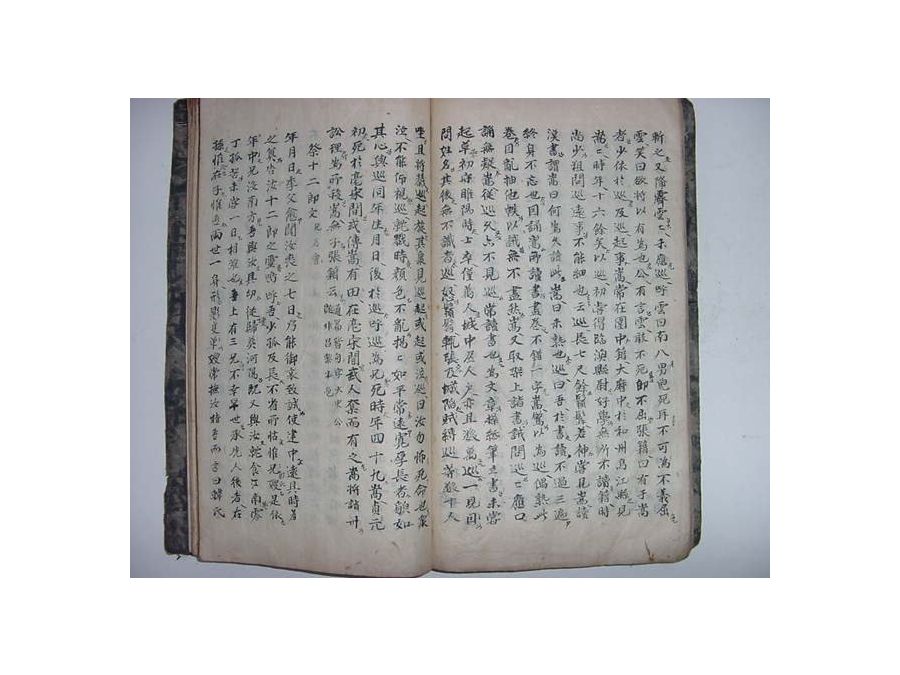 斬之又降霽雲〻未應巡呼雲曰南八男兒死耳不可為不義屈
雲笑曰欲將以有為也公有言雲敢不死即不屈張籍曰有于嵩
者少依於巡及巡起事嵩常在圍中籍大曆中於和州烏江縣見
嵩〻時年六十餘矣以巡初嘗得臨渙縣尉好學無所不讀籍時
尚少粗問巡遠事不能細也云巡長七尺餘鬚髯若神嘗見嵩讀
漢書謂嵩曰何為久讀此嵩曰未熟也巡曰吾於書讀不過三遍
終身不忘也因誦嵩所讀書盡卷不錯一字嵩驚以為巡偶熟此
卷因亂抽他帙以試無不盡然嵩又取架上諸書試問巡〻應口
誦無疑嵩從巡久亦不見巡常讀書也為文章操紙筆立書未嘗
起草初守睢陽時士卒僅萬人城中居人戶亦且數萬巡一見因
問姓名其後無不識者巡怒鬚髯輒張及城陷賊縛巡等數十人
坐且將戮巡起旋其衆見巡起或起或泣巡曰汝勿怖死命也衆
泣不能仰視巡就戮時顏色不亂揚〻如平常遠寬厚長者貌如
其心與巡同年生月日後於巡呼巡為兄死時年四十九嵩貞元
初死於亳宋間或傳嵩有田在亳宋間武人奪而有之嵩將詣州
訟理為所殺嵩無子張籍云
祭十二郎文
年月日季父愈聞汝喪之七日乃能銜哀致誠使建中遠具時羞
之奠告汝十二郎之靈嗚呼吾少孤及長不省所怙惟兄嫂是依
年中兄沒南方吾與汝俱幼從歸葬河陽既又與汝就食江南零
丁孤苦未嘗一日相離也吾上有三兄不幸早世承先人後者在
孫惟汝在子惟吾兩世一身形單影隻嫂常撫汝指吾而言曰韓氏